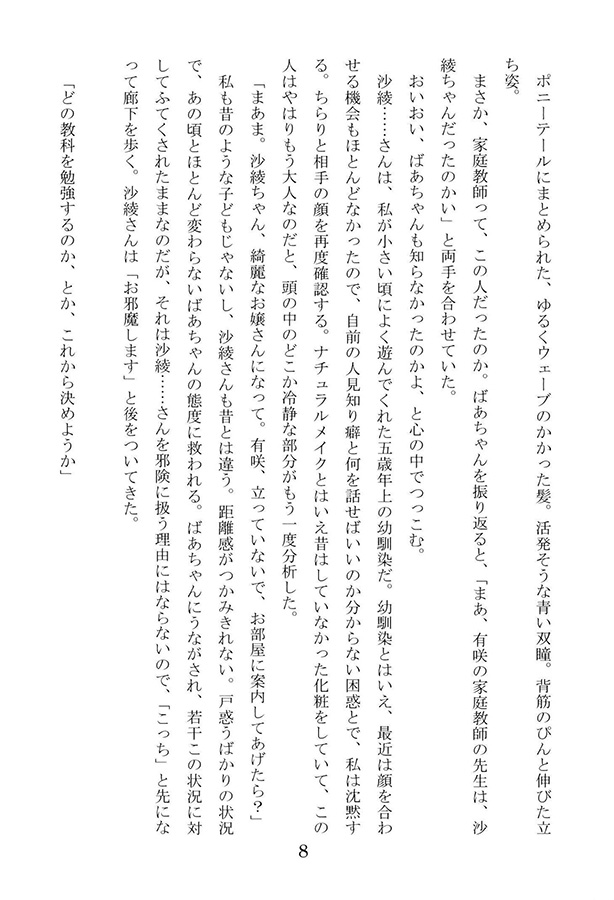 ポニーテールにまとめられた、ゆるくウェーブのかかった髪。活発そうな青い双瞳。背筋のぴんと伸びた立
ち姿。
まさか、家庭教師って、この人だったのか。ばあちゃんを振り返ると、「まあ、有咲の家庭教師の先生は、沙
綾ちゃんだったのかい」と両手を合わせていた。
おいおい、ばあちゃんも知らなかったのかよ、と心の中でつっこむ。
沙綾……さんは、私が小さい頃によく遊んでくれた五歳年上の幼馴染だ。幼馴染とはいえ、最近は顔を合わ
せる機会もほとんどなかったので、自前の人見知り癖と何を話せばいいのか分からない困惑とで、私は沈黙す
る。ちらりと相手の顔を再度確認する。ナチュラルメイクとはいえ昔はしていなかった化粧をしていて、この
人はやはりもう大人なのだと、頭の中のどこか冷静な部分がもう一度分析した。
「まあま。沙綾ちゃん、綺麗なお嬢さんになって。有咲、立っていないで、お部屋に案内してあげたら？」
私も昔のような子どもじゃないし、沙綾さんも昔とは違う。距離感がつかみきれない。戸惑うばかりの状況
で、あの頃とほとんど変わらないばあちゃんの態度に救われる。ばあちゃんにうながされ、若干この状況に対
してふてくされたままなのだが、それは沙綾……さんを邪険に扱う理由にはならないので、「こっち」と先にな
って廊下を歩く。沙綾さんは「お邪魔します」と後をついてきた。
「どの教科を勉強するのか、とか、これから決めようか」
8